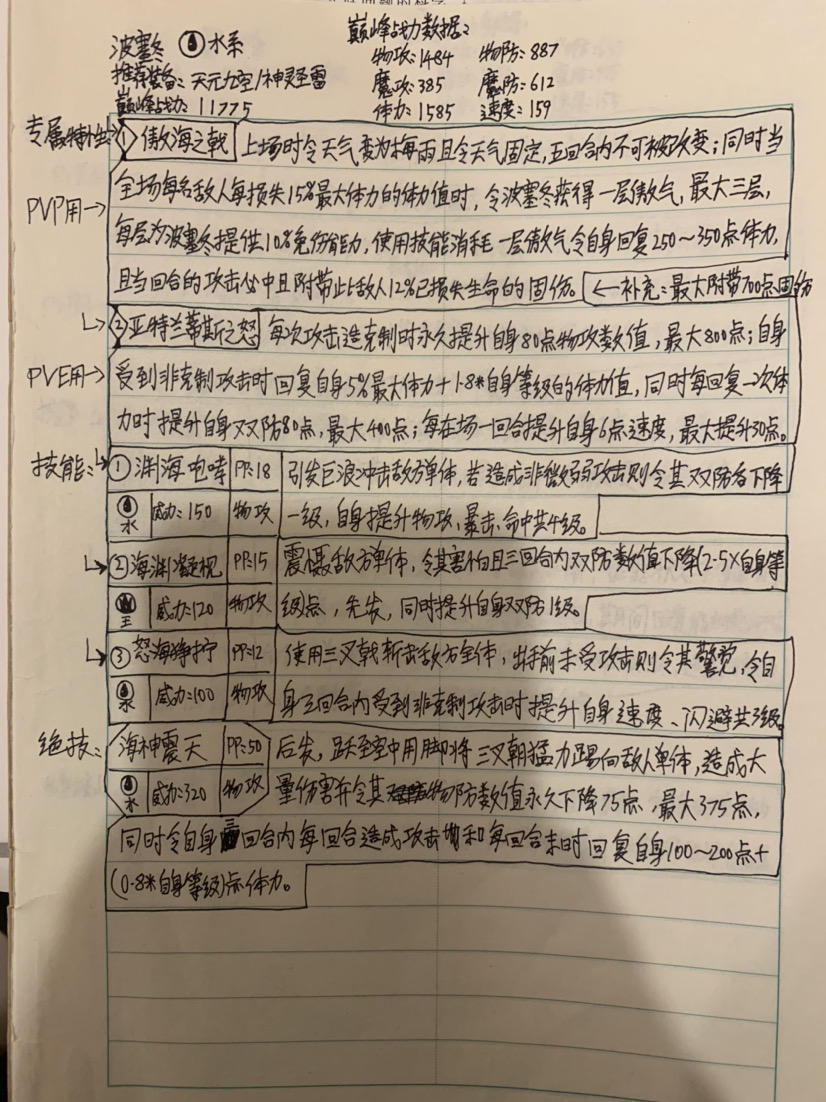 波塞冬 水系
推荐装备：天元九空/神灵圣雷
巅峰战力：11775
巅峰战力数据：
物攻：1484 物防：887
魔攻：385 魔防：612
体力：1585 速度：159
专属特性
① 傲海之戟 上场时令天气变为梅雨且令天气固定，五回合内不可被改变；同时当
PVP用→ 全场每名敌人每损失15%最大体力的体力值时，令波塞冬获得一层傲气，最大三层，
每层为波塞冬提供10%免伤能力，使用技能消耗一层傲气令自身回复250～350点体力，
且当回合的攻击必中且附带此敌人12%已损失生命的固伤。 ←补充：最大附带700点固伤
② 亚特兰蒂斯之怒 每次攻击造克制时永久提升自身80点物攻数值，最大800点；自身
PVE用→ 受到非克制攻击时回复自身5%最大体力+1.8*自身等级的体力值，同时每回复一次体
力时提升自身双双防80点，最大400点；每在场一回合提升自身6点速度，最大提升30点。
技能： ① 渊海咆哮 PP：18 引发巨浪冲击敌方单体，若造成非微弱攻击则令其双防各下降
水 威力：150 物攻 一级，自身提升物攻、暴击、命中共4级。
② 海渊凝视 PP：15 震慑敌方单体，令其害怕且三回合内双防数值下降(2.5×自身等
王 威力：120 物攻 级)点，先发，同时提升自身双防1级。
③ 怒海狰狞 PP：12 使用三叉戟斩击敌方全体，出手前未受攻击则令其警觉，令自
水 威力：100 物攻 身三回合内受到非克制攻击时提升自身速度、闪避共3级。
绝技： 海神震天 PP：50 后发，跃至空中用脚将三叉朝猛力踢向敌人单体，造成大
水 威力：320 物攻 量伤害并令其物防数值永久下降75点，最大375点，
同时令自身三回合内每回合造成攻击 和每回合末时回复自身100～200点+
(0.8*自身等级)点体力。